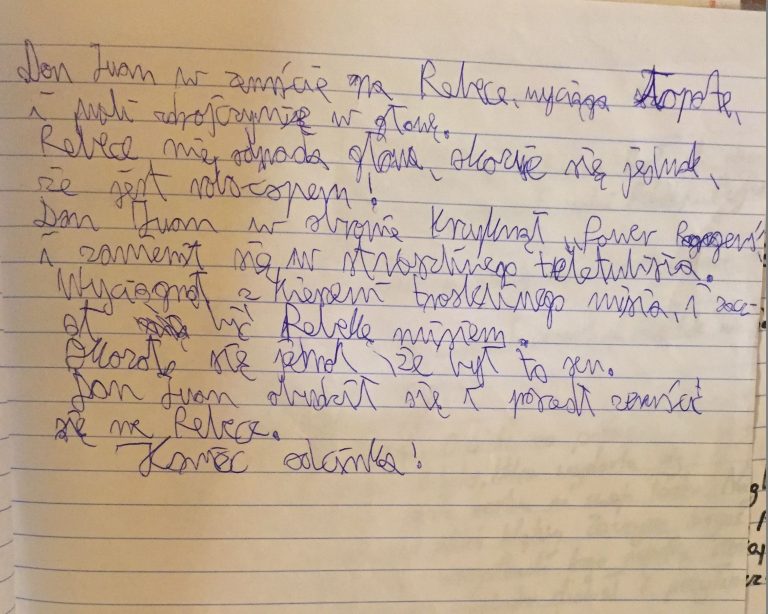 Don Juan w zemście na Rebece, wyciąga łopatę,
i wali zdrojczynię w głowę.
Rebece nie odpada głowa, okazuje się jednak,
że jest robocopem!
Don Juan w obronie krzyknął „Power Rangers"
i zamienił się w strasznego teletubisia.
Wyciągnął z kieszeni troskliwego misia, i zacz-
ął bić Rebekę misiem.
Okazało się jednak, że był to sen.
Don Juan obudził się i poszedł zemścić
się na Rebece.
Koniec odcinka!